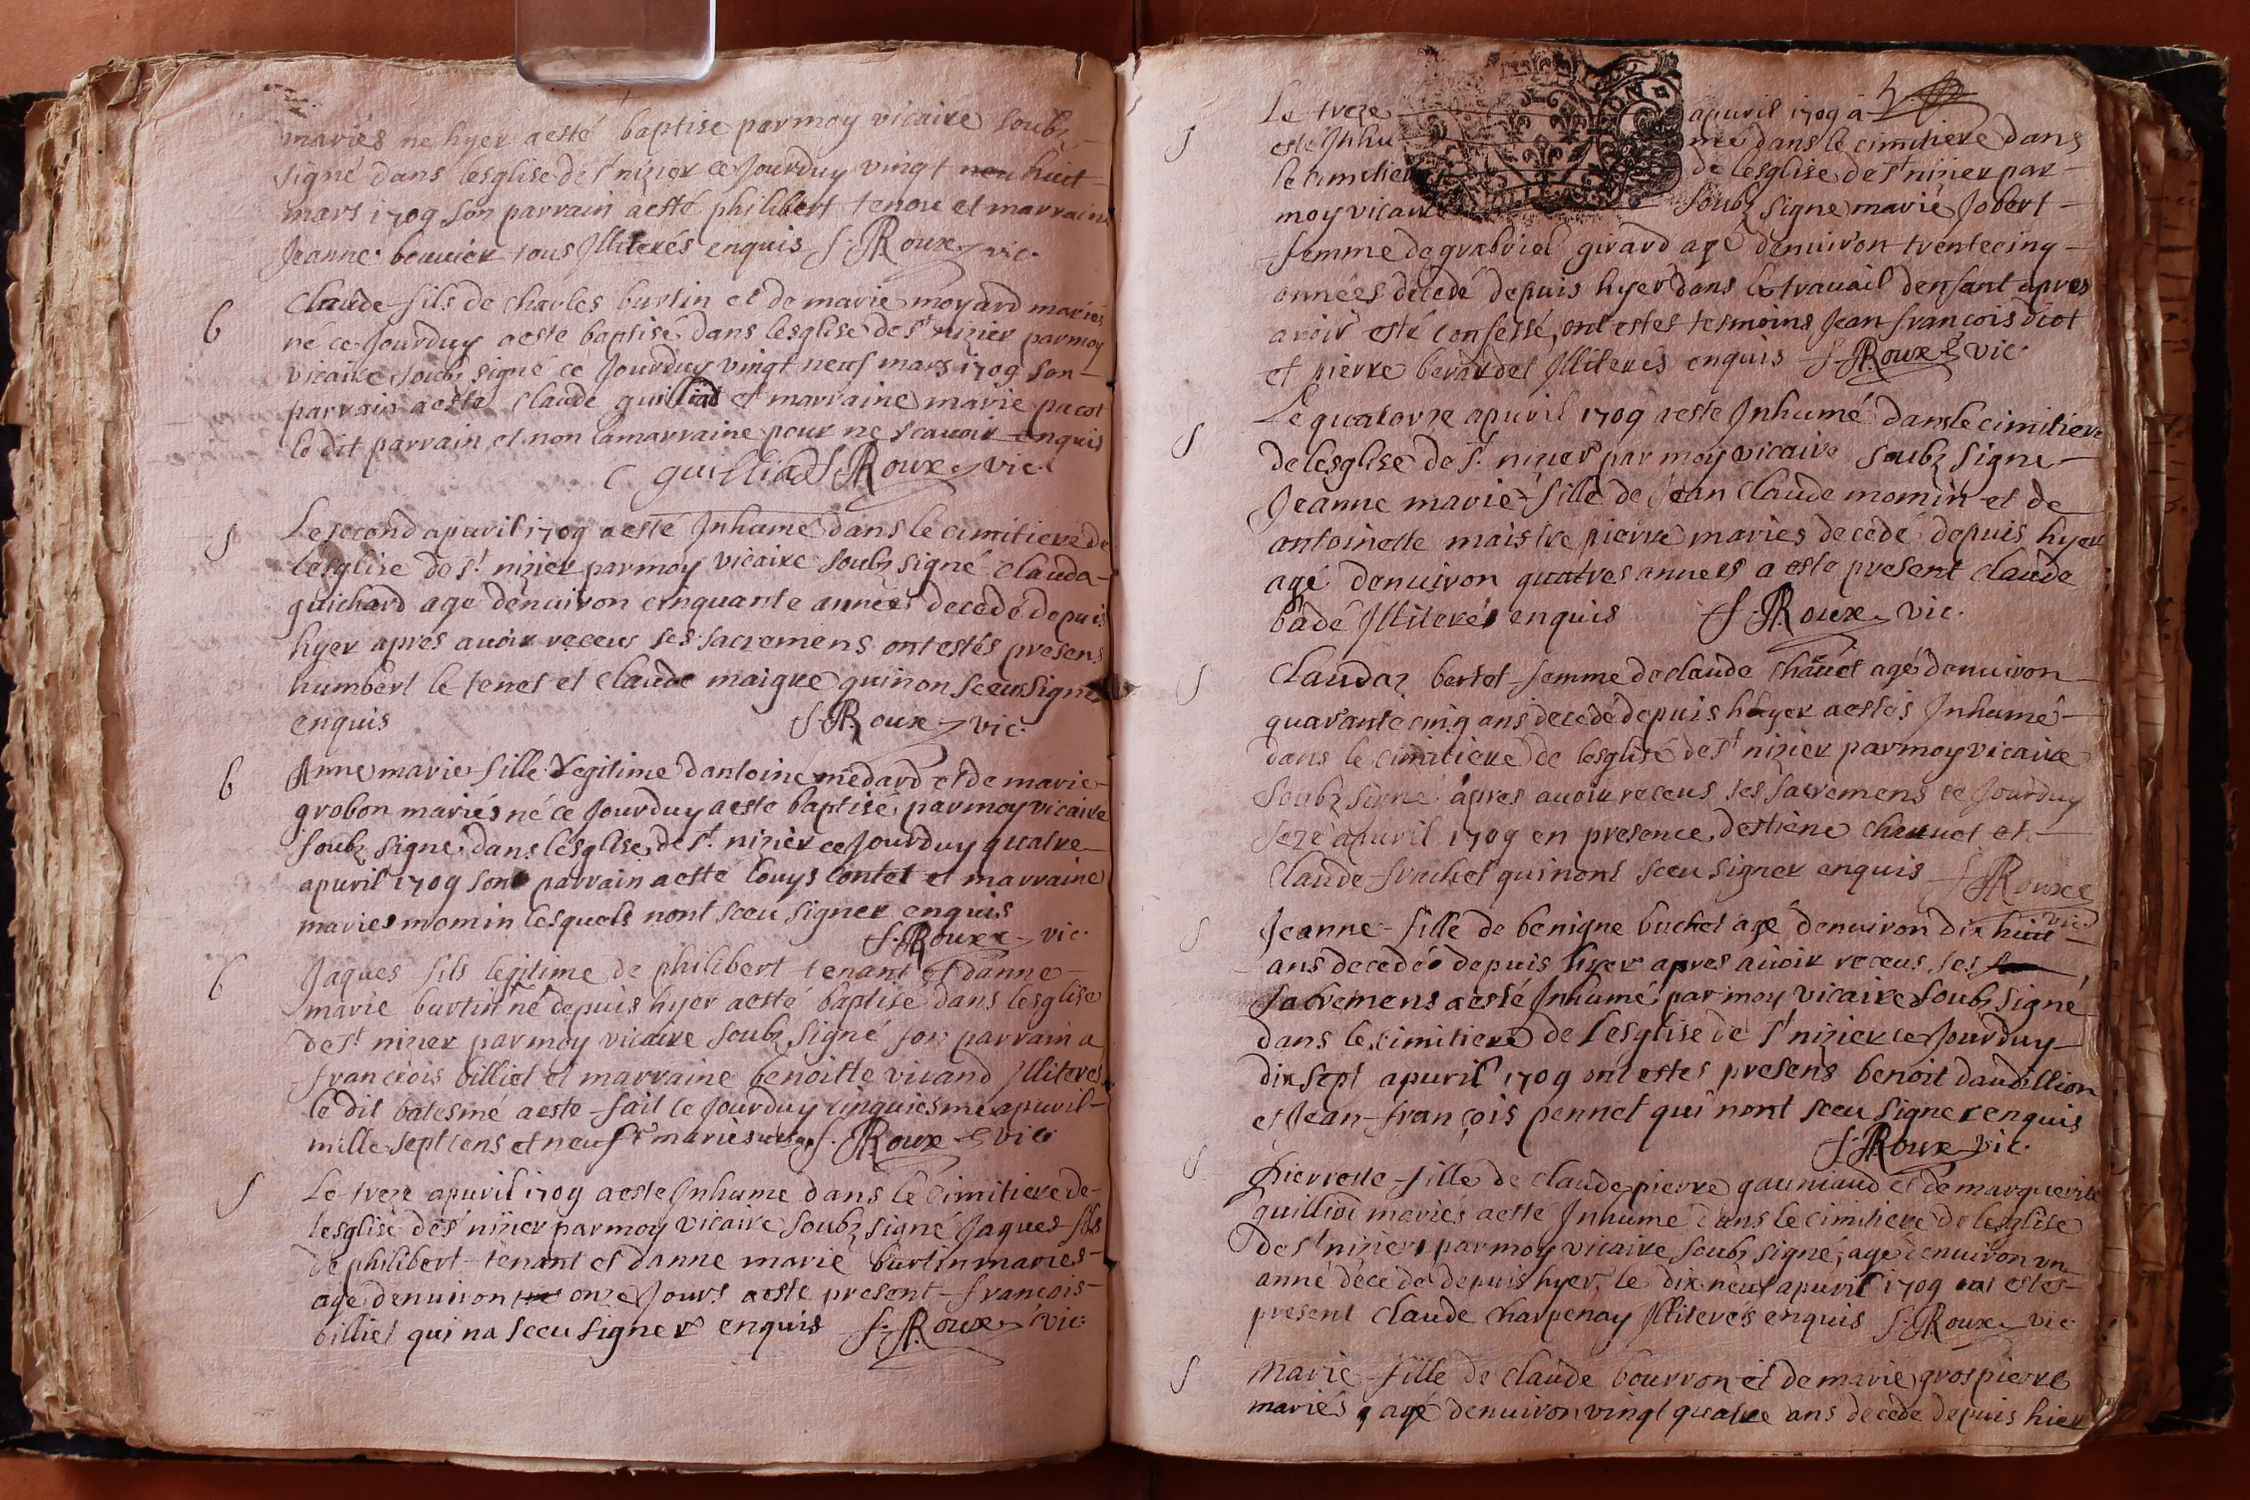 mariés ne hyer aesté baptise par moy vicaire soubz
signé dans lesglise de st nizier ce Jourduy vingt neu huit
mars 1709 son parrain aesté philibert tenou et marraine
Jeanne bouuier tous Illiterés enquis f. Roux vic.
6 Claude fils de charles burtin et de marie moyard mariés
né ce Jourduy aeste baptisé dans lesglise de st nizier par moy
vicaire soubz signé ce Jourduy vingt neuf mars 1709 son
parrain aeste claude guilliad et marraine marie pacot
le dit parrain et non lamarraine pour ne scauoir enquis
C guilliad f. Roux vic.
S Le second apuril 1709 aesté Inhumé dans le cimitiere de
lesglise de st nizier par moy vicaire soubz signé clauda
guichard age denuiron cinquante années decedé depuis
hyer apres auoir receus ses sacremens ont estés presens
humbert le tenet et claude maigre qui non sceu signe
enquis f. Roux vic.
6 Anne marie fille legitime dantoine medard et de marie
grobon mariés né ce Jourduy aeste baptisé par moy vicaire
soubz signe dans lesglise de st. nizier ce Jourduy quatre
apuril 1709 son parrain aeste louys contet et marraine
maries momin lesquels nont sceu signer enquis
f. Roux vic.
6 Jaques fils legitime de philibert tenant et danne
marie burtin né depuis hyer aesté baptise dans lesglise
de st nizier par moy vicaire soubz signé son parrain a
francois billiet et marraine benoitte viuand Illiteres
le dit batesmé aeste fait ce Jourduy cinquiesme apuril
mille sept cens et neuf mariés f. Roux vic
S Le treze apuril 1709 aeste Inhume dans le cimitiere de
lesglise de st nizier par moy vicaire soubz signé Jaques fils
de philibert tenant et danne marie burtin maries
agé denuiron onze Jours aeste present francois
billiet qui na sceu signer enquis f. Roux vic.
S Le treze apuril 1709 à
esté Inhu mé dans le cimitiere dans
le cimitier de lesglise de st nizier par
moy vicaire soubz signe marie Jobert
femme de grabriel girard agé denuiron trente cinq
années décedé depuis hyer dans le trauail denfant apres
avoir esté confessé, ont estés tesmoins Jean francois diot
et pierre berardet Illiterés enquis f. Roux vic.
S Le quatorze apuril 1709 aeste Inhumé dans le cimitiere
de lesglise de st. nizier par moy vicaire soubz signe
Jeanne marie fille de Jean claude momin et de
antoinette maistre pierre maries decedé depuis hyer
agé denuiron quatres annees a este present claude
badé Illiterés enquis f. Roux vic.
S Claudaz bertet femme de claude chauet agé denuiron
quarante cinq ans decedé depuis hyer aestés Inhumé
dans le cimitiere de lesglise de st nizier par moy vicaire
soubz signé apres auoir receus ses sacremens ce Jourduy
seze apuril 1709 en presence destiene chauuet et
claude frachet qui nont sceu signer enquis f. Roux
vic
S Jeanne fille de benigne buchet agé denuiron dix huit
ans decedéé depuis hyer apres auoir receus ses
sacremens aesté Inhumé par moy vicaire soubz signé
dans le cimitiere de lesglise de st nizier ce Jourduy
dix sept apuril 1709 ont estes presens benoit daudillion
et Jean françois pennet qui nont sceu signer enquis
f. Roux vic.
S Pierrette fille de claude pierre gauniaud et de marguerite
guilliod mariés aeste Inhume dans le cimitiere de lesglise
de st nizier par moy vicaire soubz signé, age denuiron un
anné décedé depuis hyer, le dix neuf apuril 1709 ont estes
present claude charpenay Illiterés enquis f. Roux vic
S Marie fille de claude bourron et de marie grospierre
mariés, agé denuiron vingt quatre ans decede depuis hier